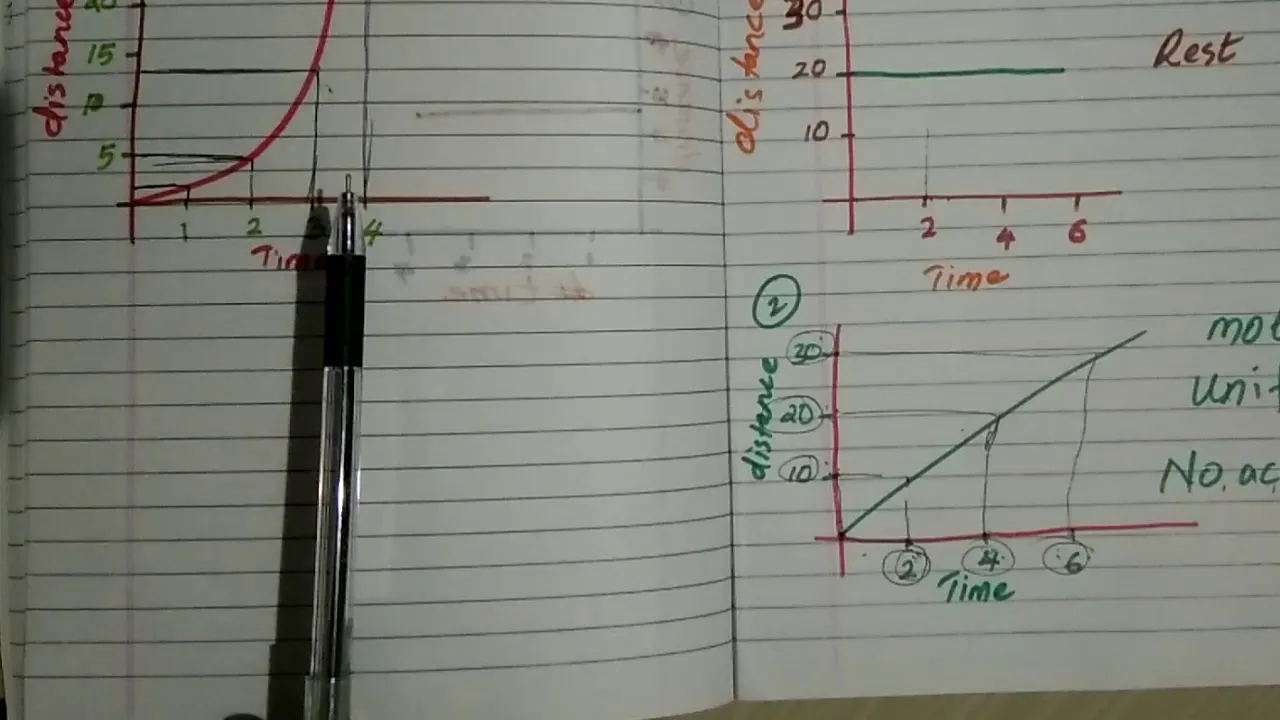 distance
15
10
5
1 2 3 4
Time
distance
30
20
10
Rest
2 4 6
Time
2
distance
30
20
10
2 4 6
Time
No. ac